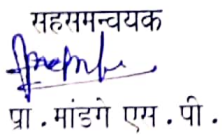 सहसमन्वयक
प्रा.मांडगे एम.पी.